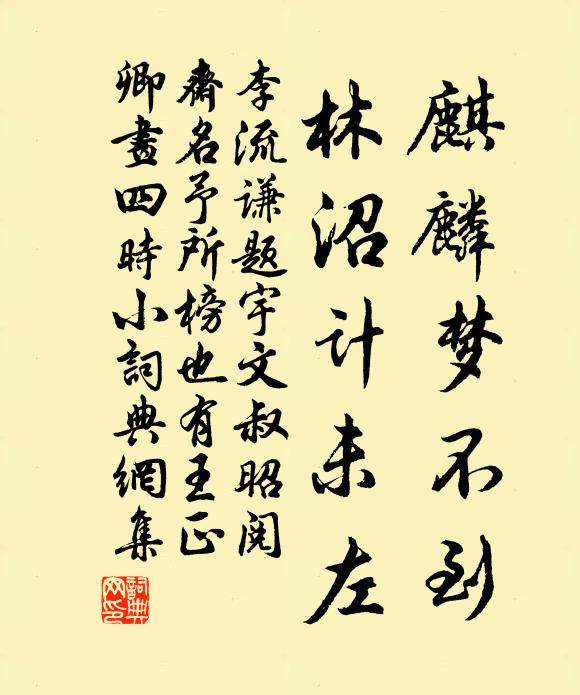 麒麟梦不到
林沼计未左
李流谦题宇文叔昭阅
齋名予所榜也有王正
卿畫四時小詞典網集
詞典網印